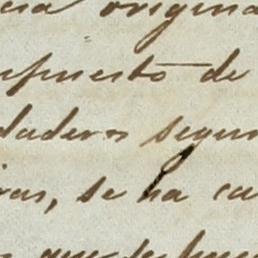 cia origina
upuesto de
dadero segun
ras, se ha ca
que se